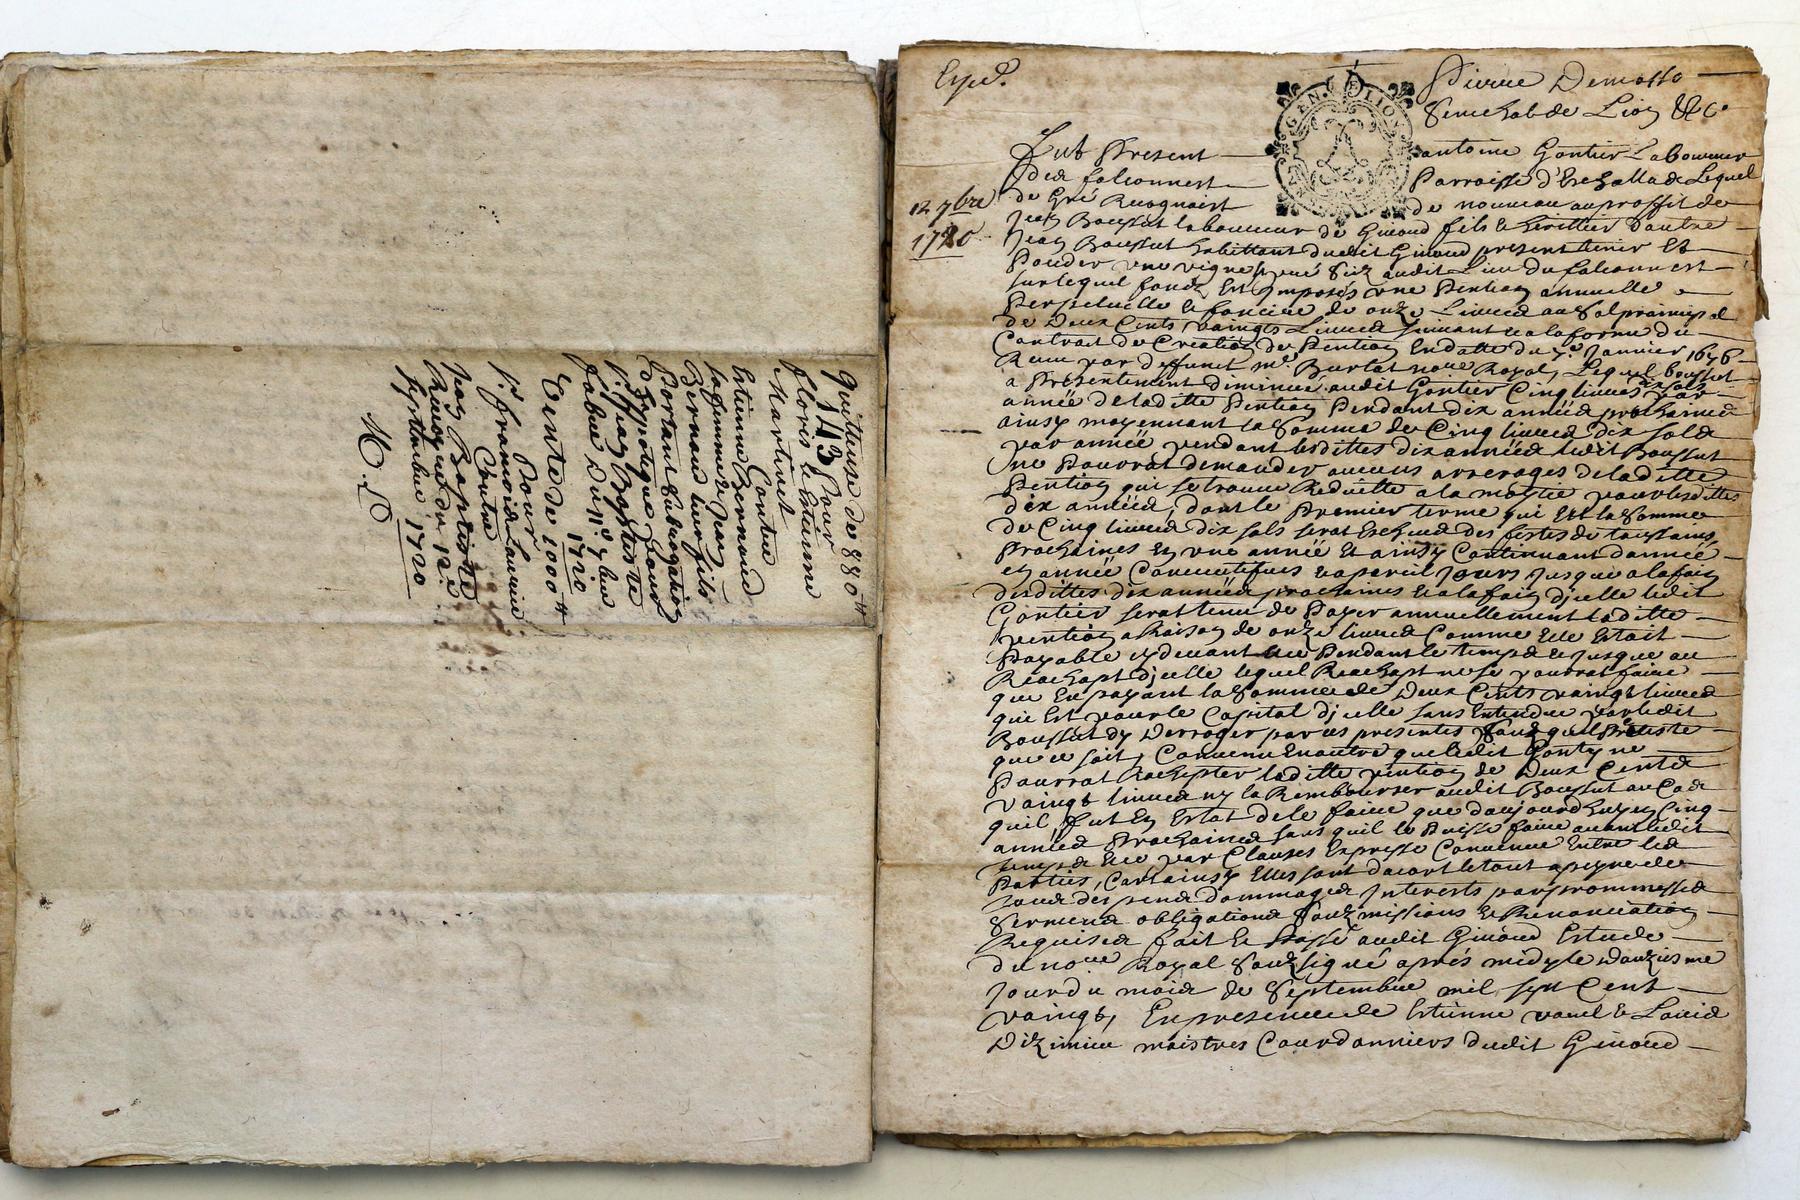 quittance de 880 ₶
143 Pour
floris & Estienne
Martinet
Contre
Estienne Bernaud
sa femme & Jean
Bernaud leur fils
Portant subrogation
d'hypoteque sous
Sr Jean Baptiste
fabue Du 11e 7bre
1720
Vente de 1000 ₶
Pour
Sr françois Laurin
Contre
Jean Baptiste
du 12e
septembre 1720
Expé.
Pierre Demasso
Senechal de Lion &c
GEN. DE LION
12 7bre
1720
fut Present antoine Gontier Laboureur
des falconnest Parroisse d'Eschallade Lequel
de Gré Recognoist de nouveau au proffit de
Jean Boussut laboureur de Givord fils & heritier d'autre
Jean Boussut habittant dudit Givord present tenir Et
Posseder une vigne size audit Lieu du falconnest
sur lequel fondz Est Imposés une Pention annuelle
Perpetuelle & fonciere de onze Livres au Sol principal
de Deux Cents vaingts Livres suivant & a la forme du
Contrait de Creation de Pention En datte du Janvier 1676
Receu par deffunt me Burlat nore Royal, Lequel boussut
a Presentement diminué audit Gontier Cinq livres dix sols par
année de laditte Pention Pendant dix années prochaines
ainsy moyennant la somme de Cinq livres dix sols
par année pendant lesdittes dix années ledit Boussut
ne Pourrat demander aucuns arrerages de laditte
Pention qui se trouve Reduitte a la moytié pour lesdittes
dix années, dont le Premier terme qui Est la somme
de Cinq livres dix sols serat Escheus des festes de toussaints
Prochaines En une année Et ainsy Continuant d'année
en année Consecutifues & a pareil Jours Jusque a la fain
desdittes dix années prochaines & a la fain d'jcelle ledit
Gontier serat tenu de Payer annuellement laditte
pention a Raison de onze livres Comme Elle Estait
Payable cy devant & ce Pendant le temps & Jusque au
Reachapt d'jcelle lequel Reachapt ne se pourrat faire
que En payant la somme de Deux Cents vaingt livres
qui Est pour le Capital d'jcelle sans Entendre par ledit
Boussut dy Derroger par ces presentes
que ce soit, Convenu En autre que ledit Gontier ne
Pourrat Rachepter laditte pention de Deux Cents
vaingt livres ny la Rembourser audit Boussut au Cas
quil fut En Estat de le faire que daujourdhuy En Cinq
années Prochaines sans quil le Puisse faire avant ledit
temps & ce par Clauses Expresse Convenue Entre les
Parties, Car ainsy Elles sont dacort le tout a peyne de
tous despens dommages Interests par prommesses
sermens obligations Soubzmissions & Renonciation
Requises fait & Passé audit Givord Estude
du nore Royal Soubzsigné aprés midy le Douziesme
Jour du mois de Septembre mil sept Cent
vaingt, En presence de Estienne & Louis
maistres Courdonniers dudit Givord